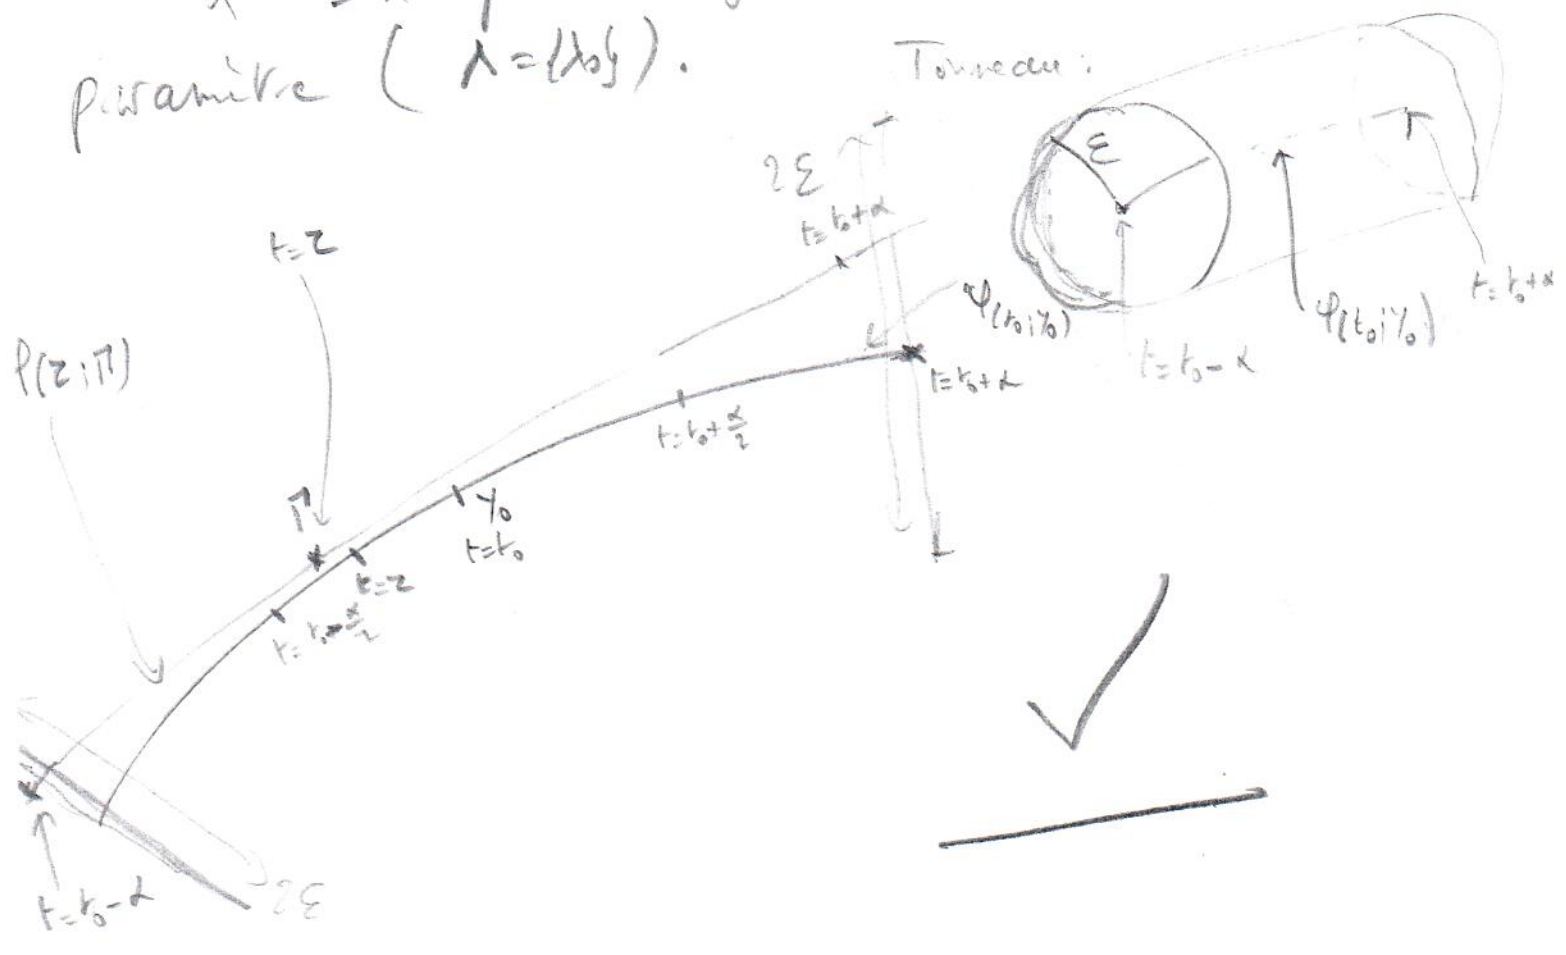 paramètre ( Λ={λ₀} ).
Tonneau :
ε
2ε
t=t₀+α
t=τ
φ(t₀;y₀)
φ(t₀;y₀)
t=t₀+α
t=t₀-α
φ(τ;Γ)
t=t₀+α
t=t₀+α/2
Γ
y₀
t=t₀
t=τ
t=t₀-α/2
t=t₀-α
2ε